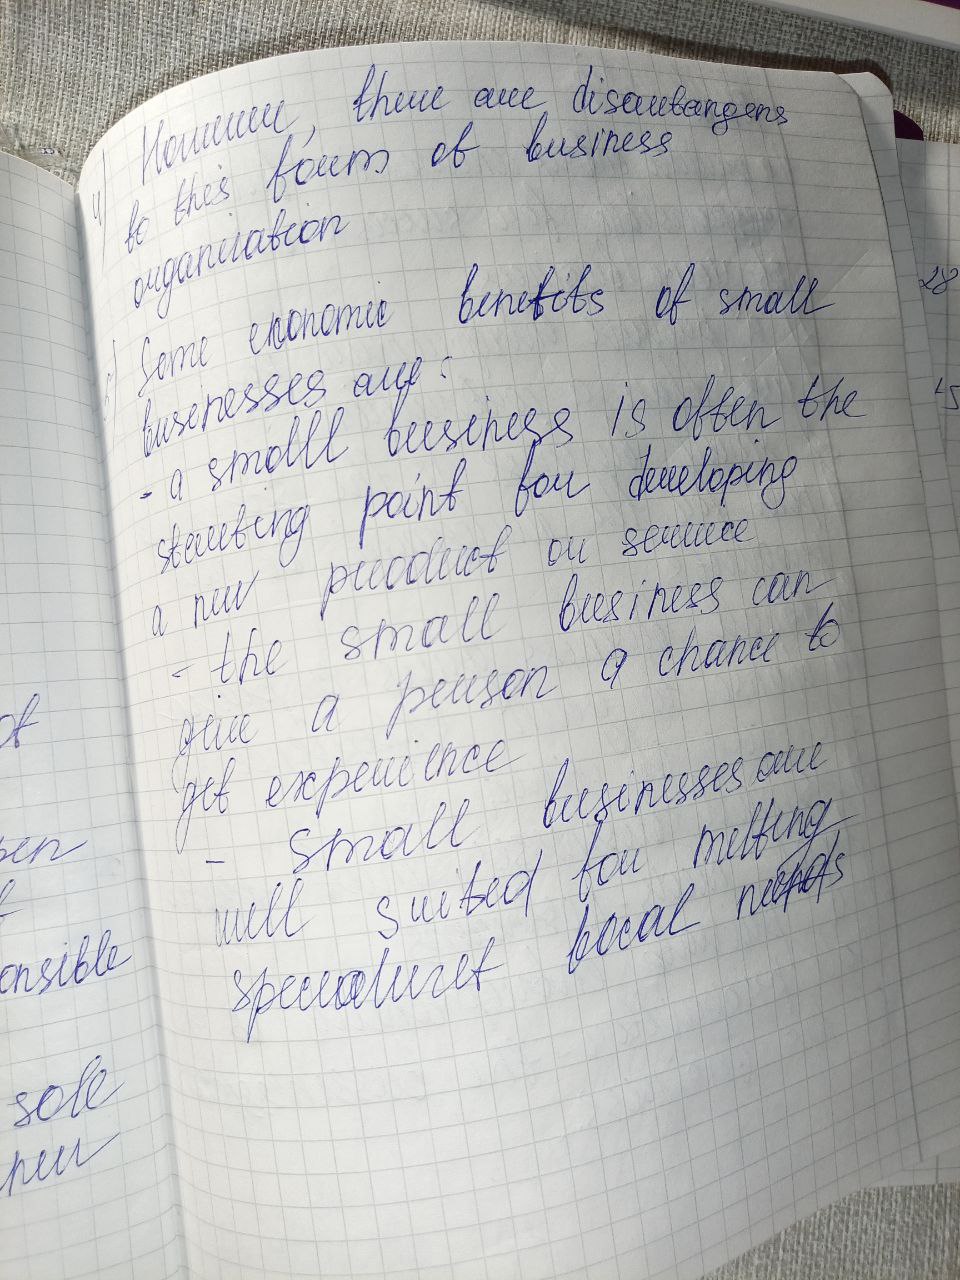 4) However, there are disavantangens
to this form of business
organization
5) Some economic benefits of small
businesses are:
- a smalll business is often the
starting point for developing
a new product or service
- the small business can
give a person a chance to
get experience
- small businesses are
well suited for meeting
local needs
of
onsible
sole
28